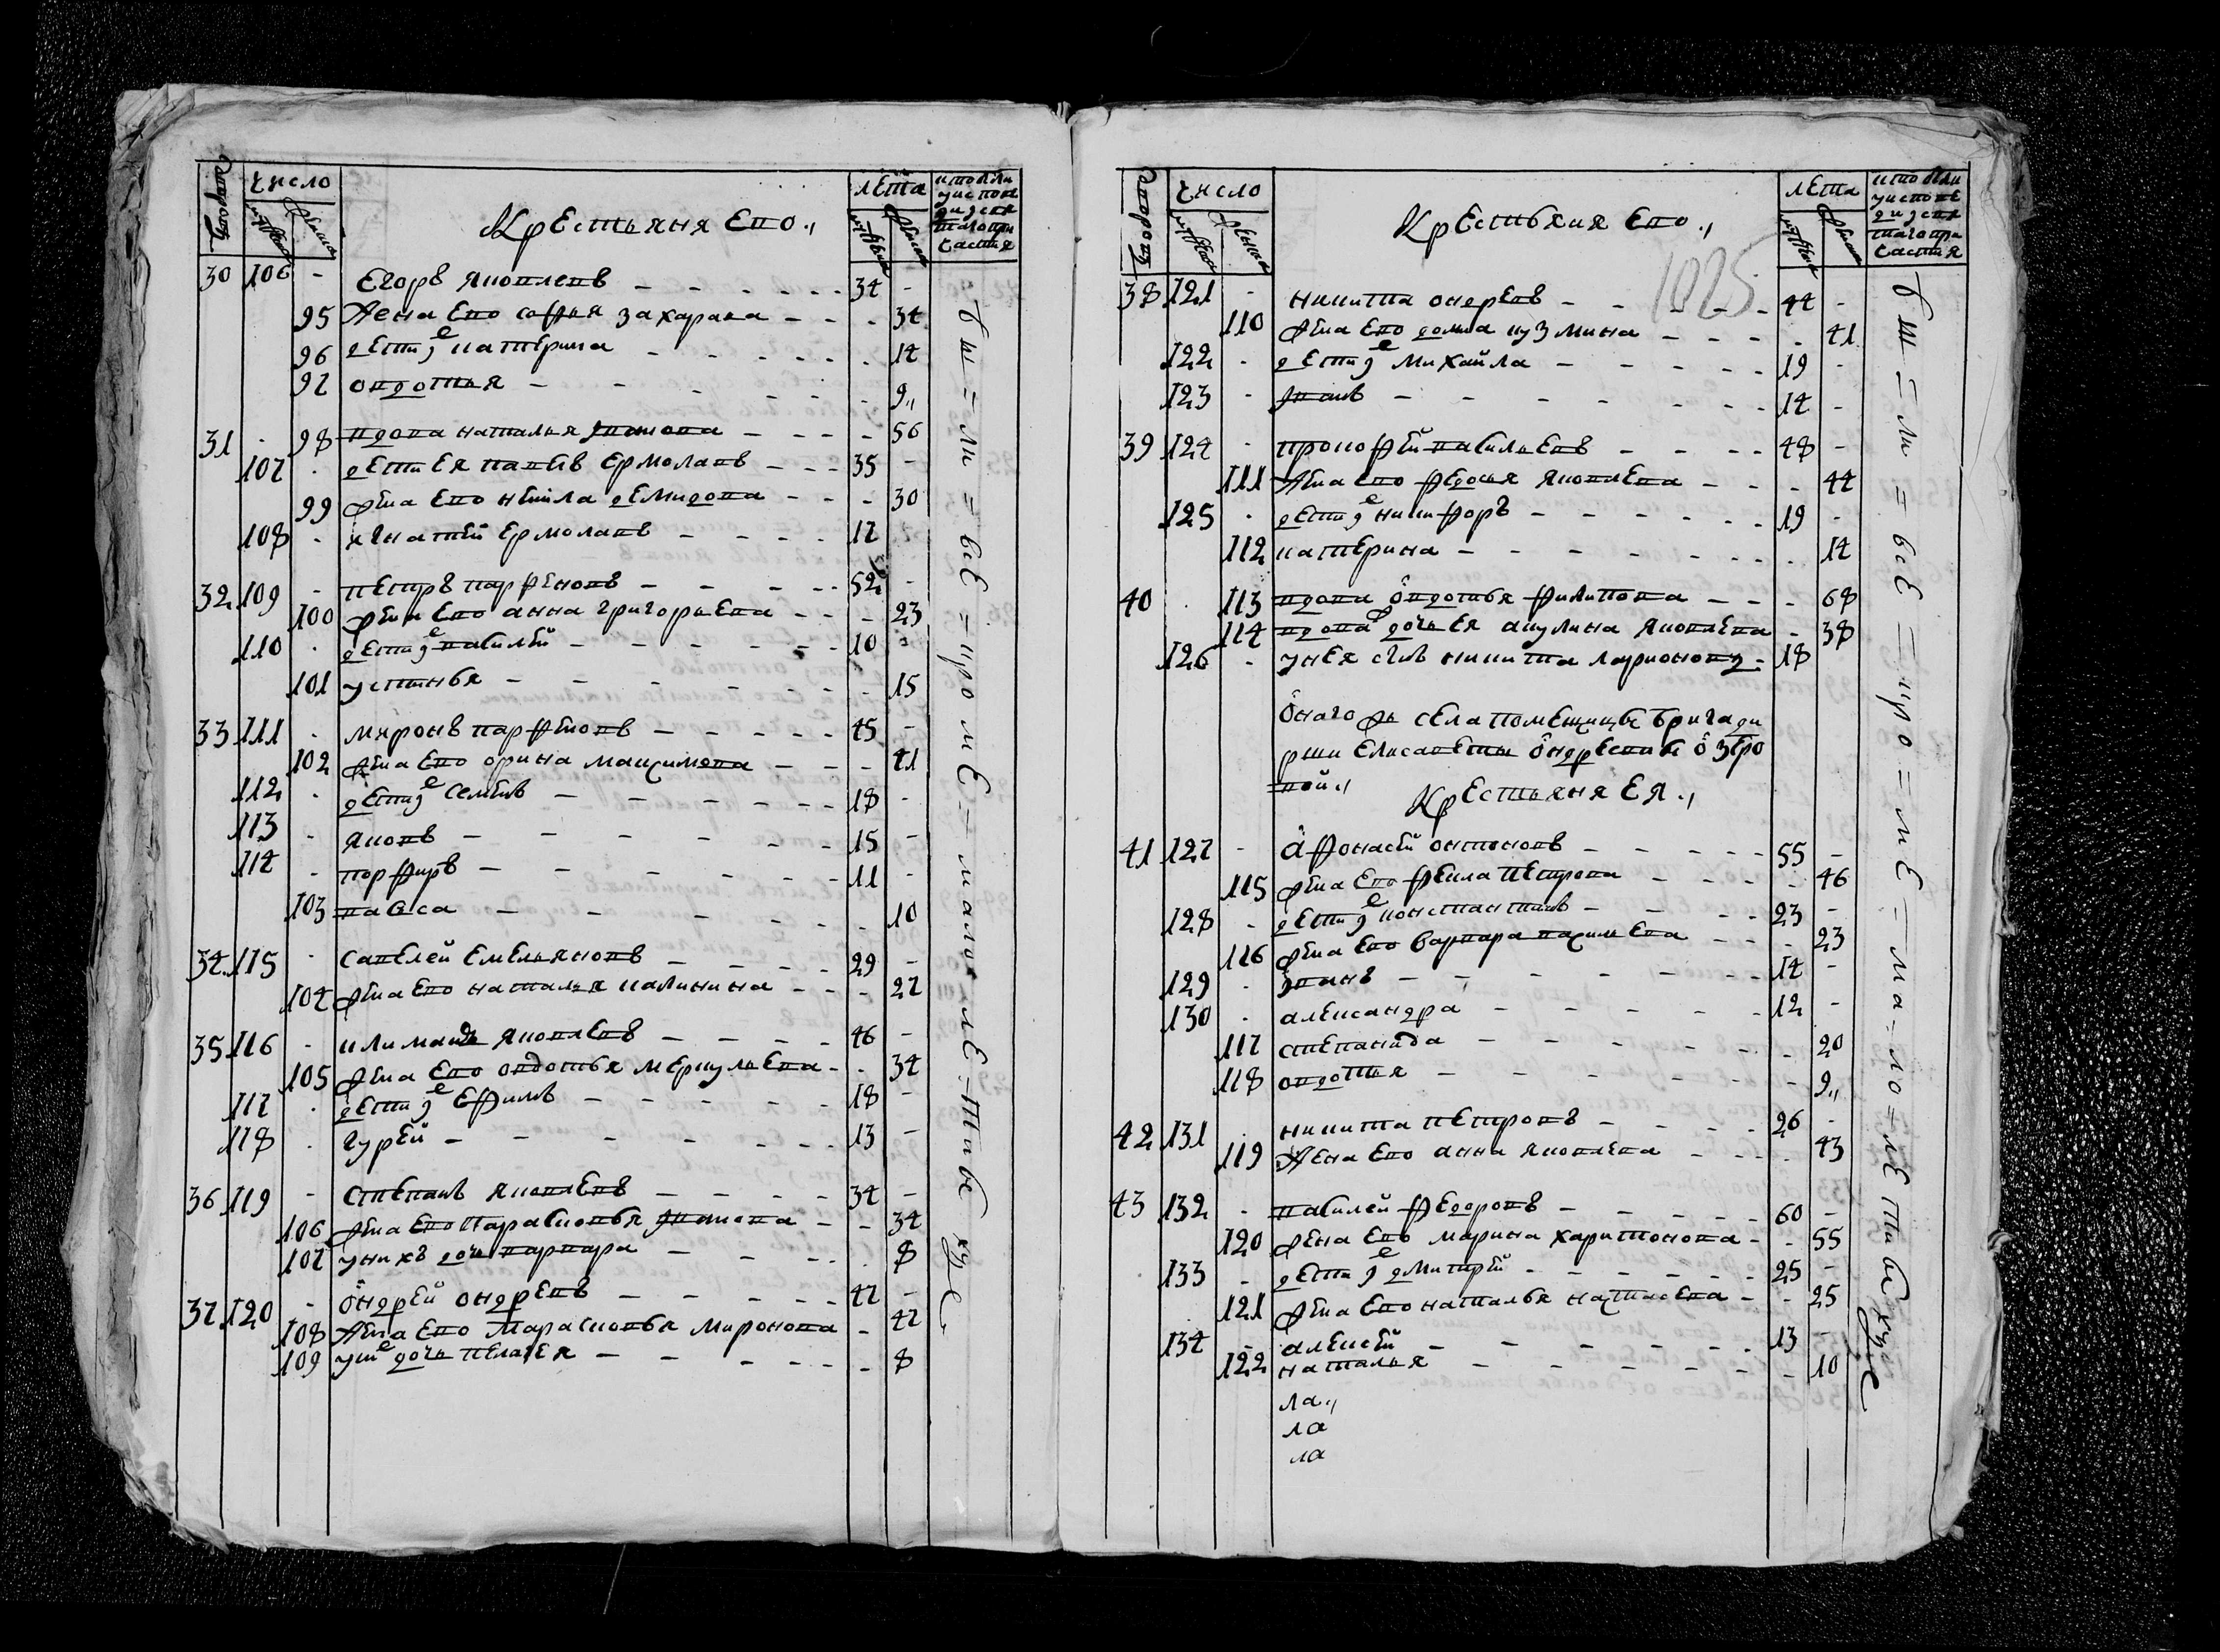 число
лета
Крестьяня ево.,
30 106 - Егоръ Яковлевъ - 34 -
95 Жена ево софья захарава - 34
96 дети катерина - 14
97 овдотья - 9,,
31 - 98 вдова наталья Иванова - 56
107 - дети ея павелъ ермолавъ - 35 -
99 жена ево ненила демидова - 30
108 - игнатей ермолавъ - 17
32 109 - петръ парфеновъ - 52 -
100 жена ево анна григорьева - 23
110 - дети василей - 10 -
101 устинья - 15
33 111 - миронъ парфеновъ - 45 -
102 жена ево орина максимова - 41
112 - дети семенъ - 18 -
113 - яковъ - 15 -
114 - порфиръ - 11 -
103 васса - 10
34 115 - савелей емельяновъ - 29 -
104 жена ево наталья калинина - 27
35 116 - климантъ яковлевъ - 46 -
105 жена ево овдотья меркульева - 34
117 - дети ефимъ - 18 -
118 - гурей - 13 -
36 119 - степанъ яковлевъ - 34 -
106 жена ево парасковья иванова - 34
107 у нихъ дочь варвара - 8
37 120 - ондрей ондревъ - 47 -
108 Жена ево марасковья миронова - 47
109 дочь пелагея - 8
бы = ли = все = кро ме = мало ле = тныхъ
число
лета
Крестьяня ево.,
1025
38 121 - никита ондревъ - 44 -
110 жена ево домна кузмина - 41
122 - дети михайла - 19 -
123 - иванъ - 14 -
39 124 - прокофей васильевъ - 48 -
111 Жена ево федосья яковлева - 44
125 - дети никифоръ - 19 -
112 катерина - 14
40 - 113 вдова овдотья филипова - 68
114 вдова дочь ея акулина яковлева - 38
126 - у нея сынъ никита ларионовъ - 18
Онаго жъ села помещицы бригади
рши елисаветы ондревны озеро
вой.,
Крестьяня ея.,
41 127 - афонасей онтоновъ - 55 -
115 жена ево фекла петрова - 46
128 - дети константинъ - 23 -
116 жена ево варвара - 23
129 - иванъ - 14 -
130 - александра - 12 -
117 степанида - 20
118 овдотья - 9,,
42 131 - никита петровъ - 26 -
119 Жена ево анна яковлева - 43
43 132 - василей федоровъ - 60 -
120 жена ево марина харитонова - 55
133 - дети дмитрей - 25 -
121 жена ево наталья - 25
134 - алексей - 13 -
122 наталья - 10
ла.,
ла
ла
бы = ли = все = кро = ме = ма = ло = ле тныхъ